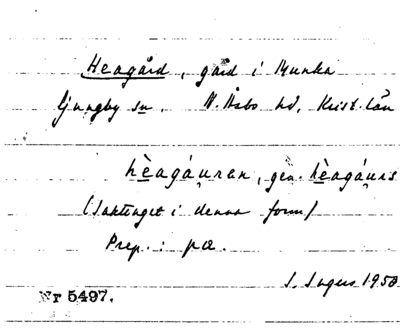 Heagård, gård i Munka
Ljungby sn. N. Åsbo hd, Krist. län
hèagáu̯ran, gen. hèagáu̯rs
(Saktinget i denna form)
Prep.: pæ.
S. Ingers 1950
Nr 5497.